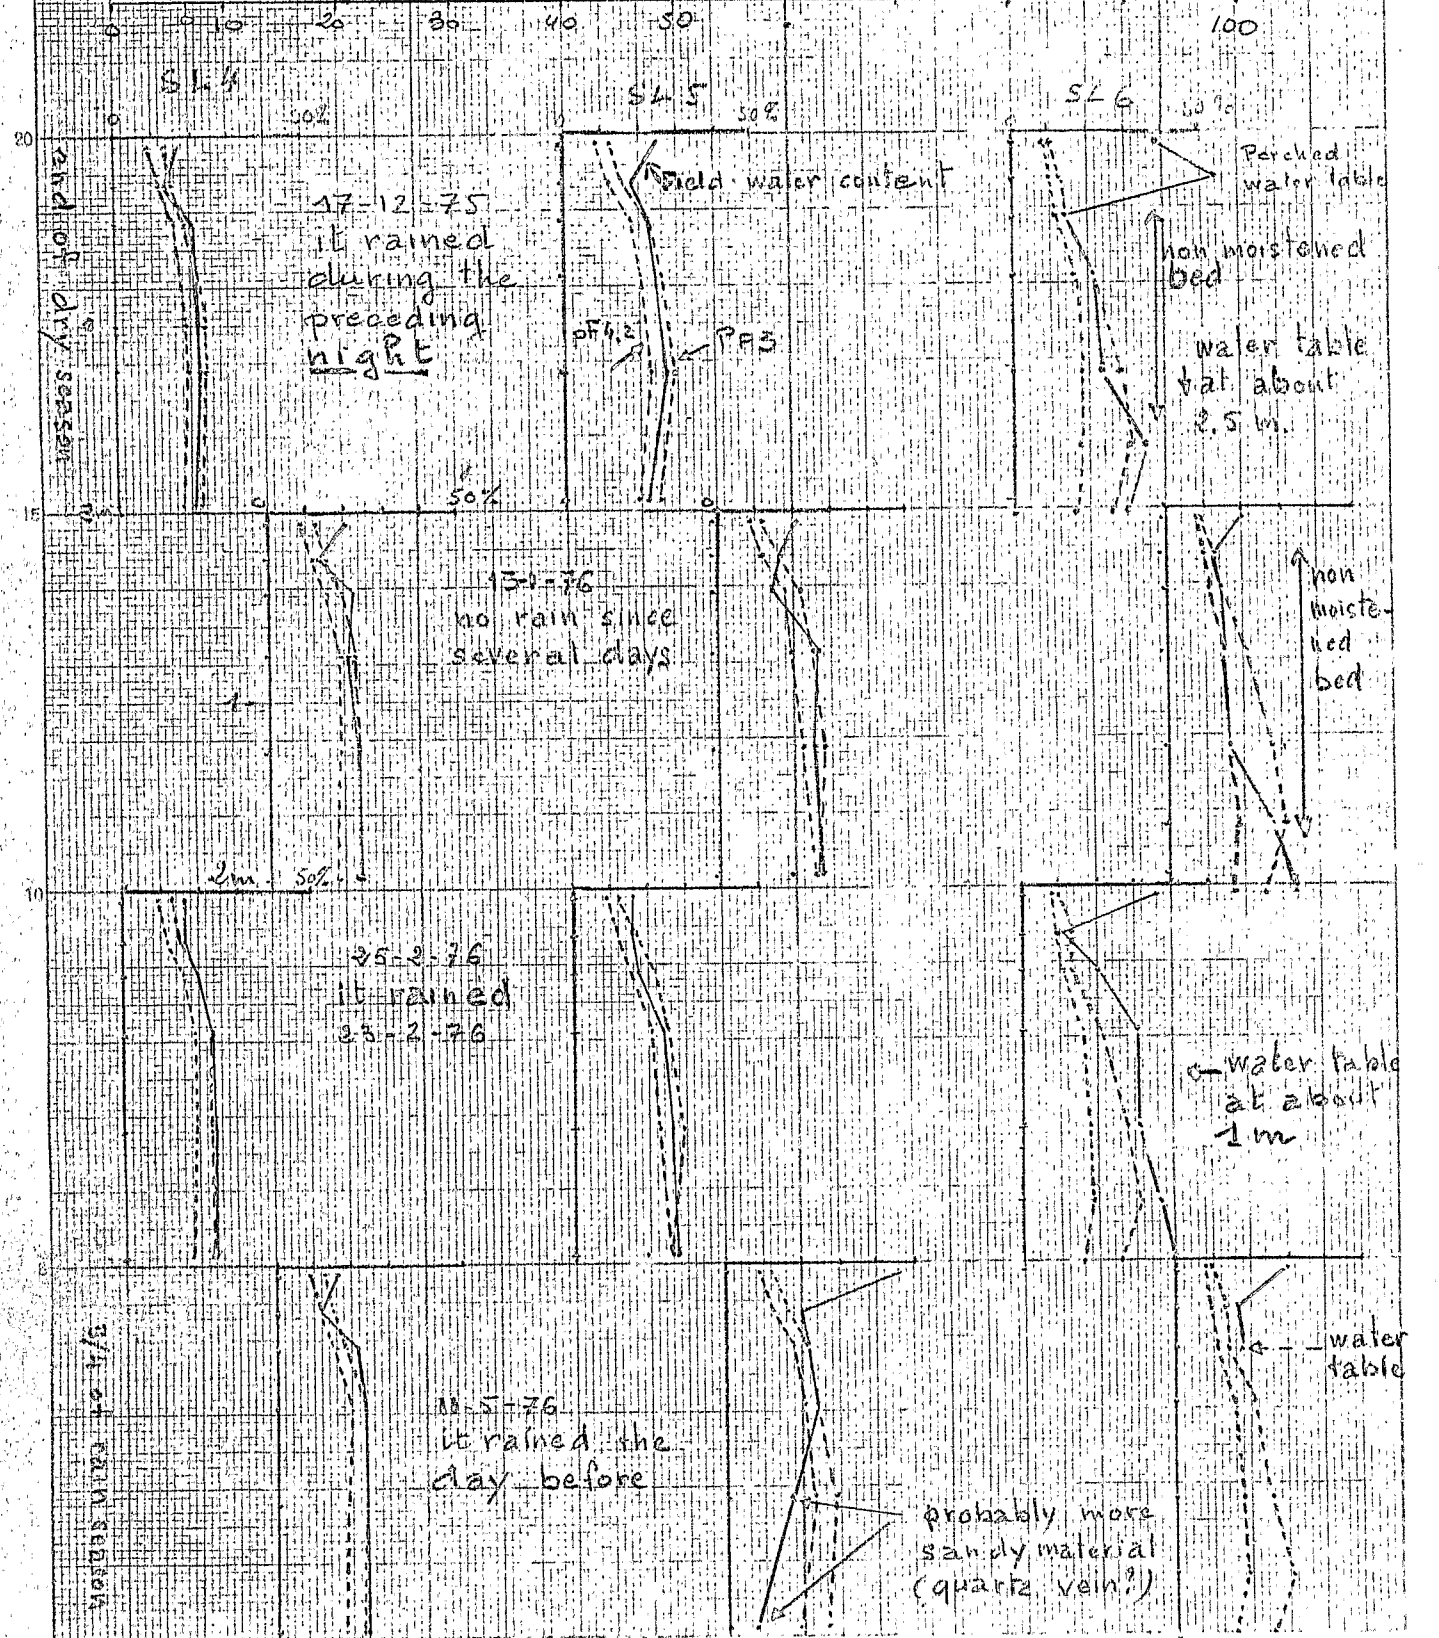 0 10 20 30 40 50 100
SL4 SL5 SL6
0 50% 50% 50%
20
end of dry season
17-12-75
it rained
during the
preceding
night
Field water content
pF4.2
PF3
Perched
water table
non moistened
bed
water table
at about
2.5 m.
15
0 50% 0
13-1-76
no rain since
several days
1
non
moiste-
ned
bed
2m 50%
10
25-2-76
it rained
23-2-76
water table
at about
1m
3/4 of rain season
11-5-76
it rained the
day before
water
table
probably more
sandy material
(quartz vein?)